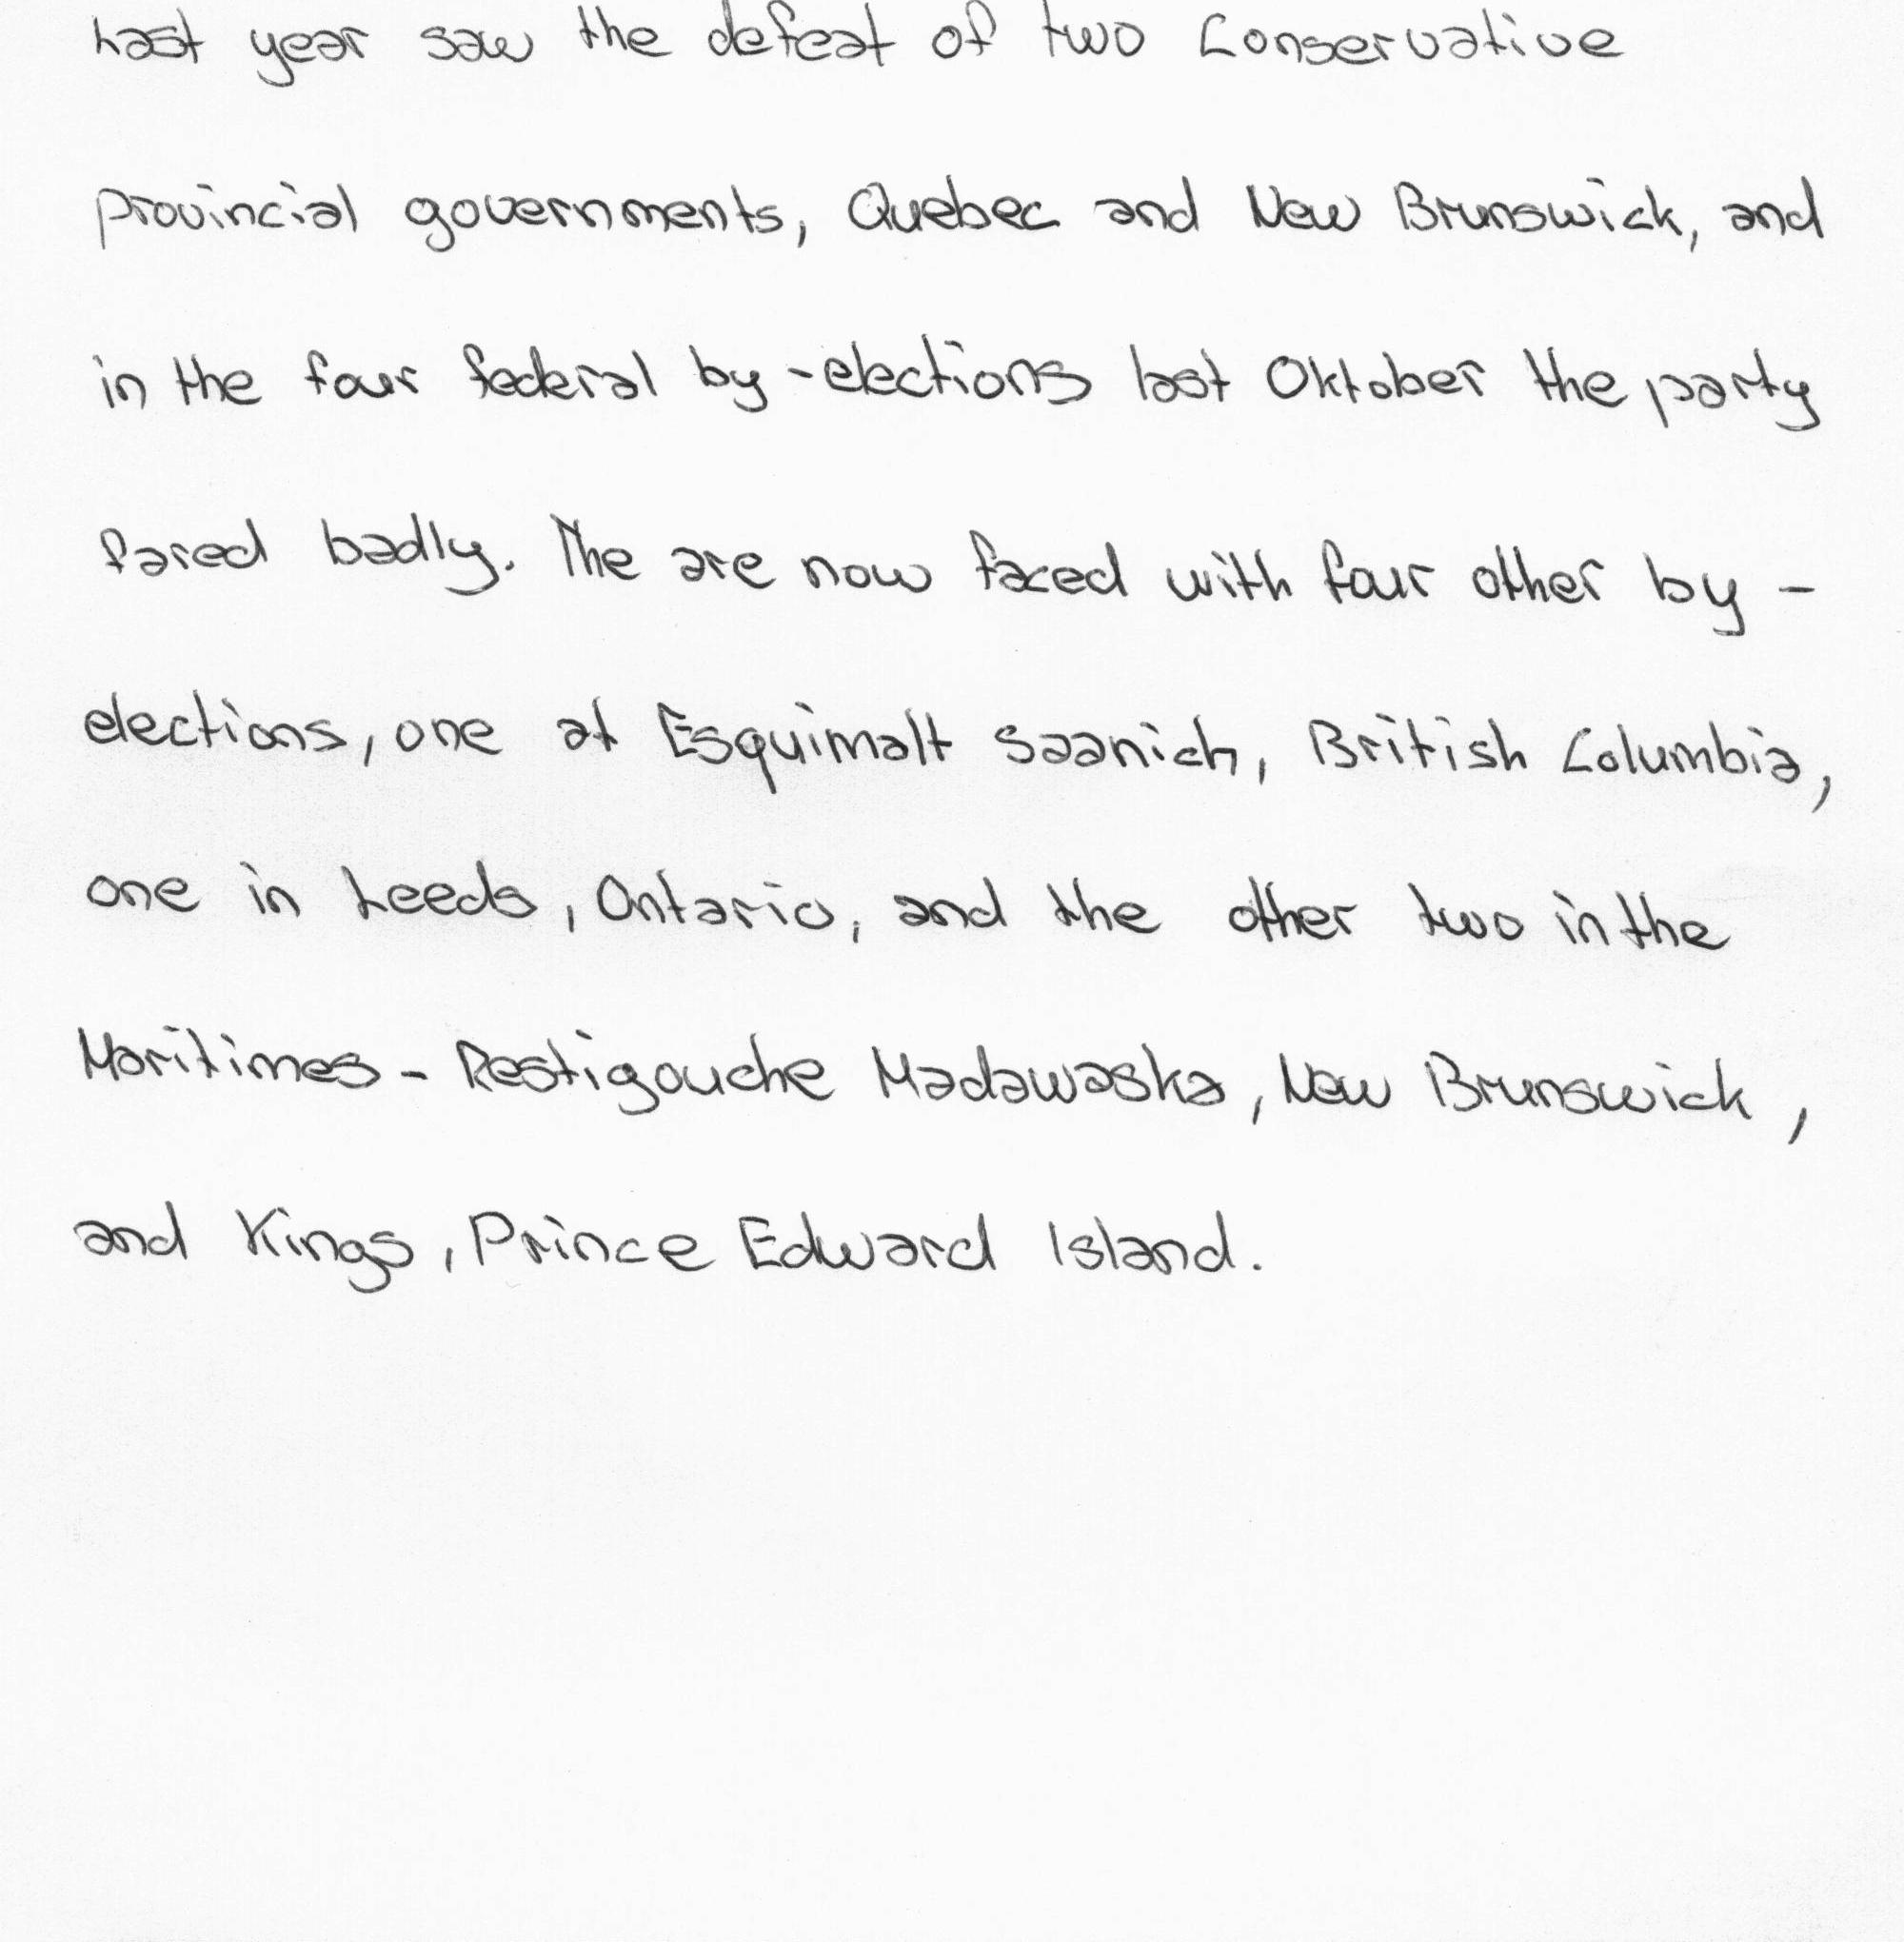 Last year saw the defeat of two Conservative
provincial governments, Quebec and New Brunswick, and
in the four federal by-elections last Oktober the party
fared badly. The are now faced with four other by-
elections, one at Esquimalt Saanich, British Columbia,
one in Leeds, Ontario, and the other two in the
Maritimes - Restigouche Madawaska, New Brunswick,
and Kings, Prince Edward Island.